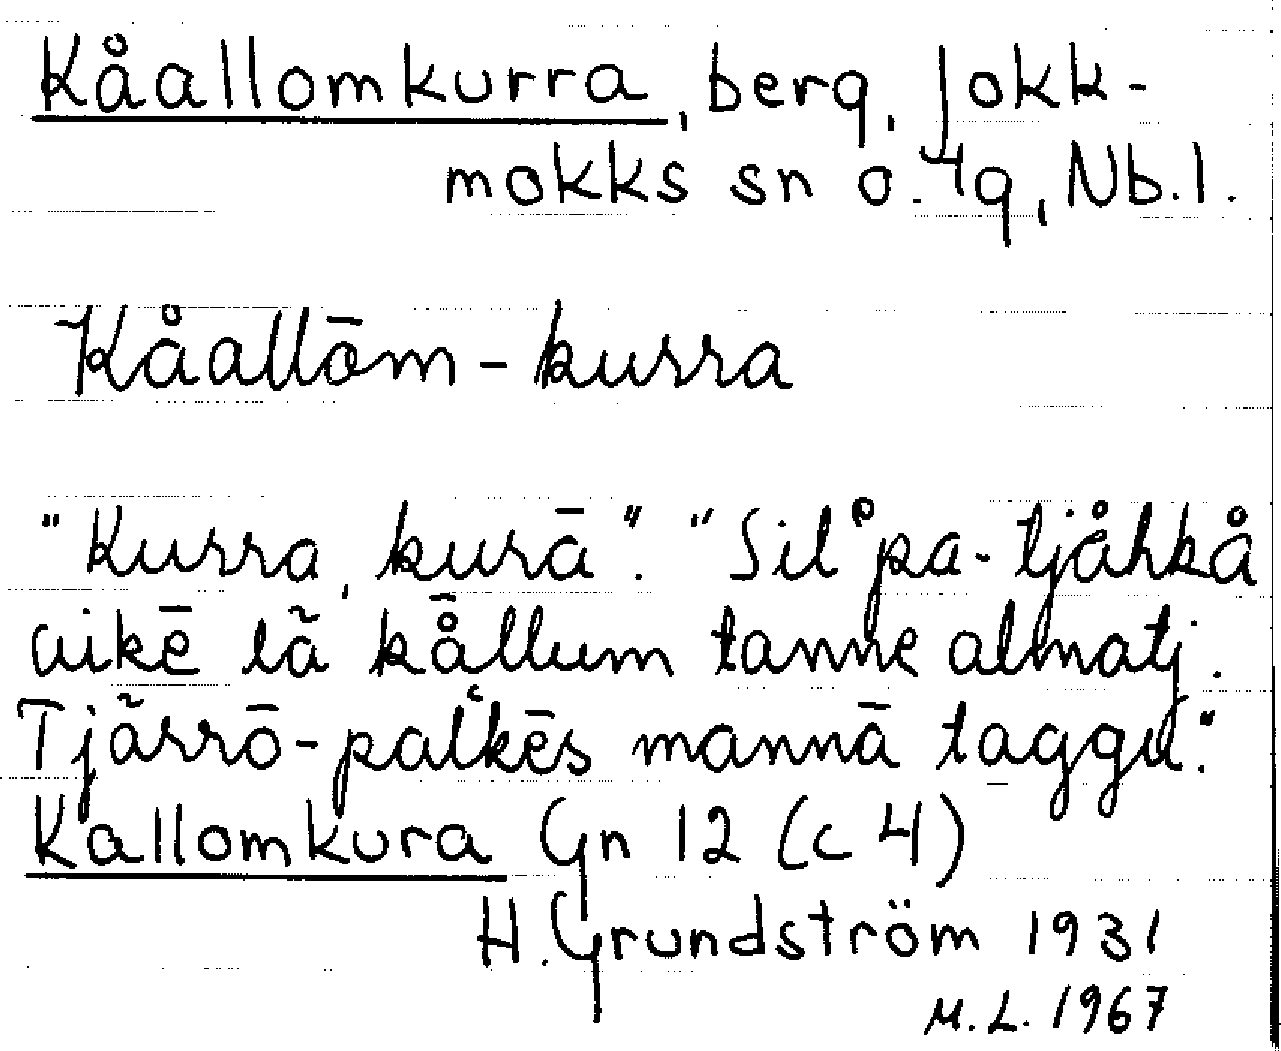 Kåallomkurra, berg, Jokk-
mokks sn o. hg, Nb.l.
Kåallōm-kurra
"Kurra, kurā". "Silᵖpa-tjåhkå
aikē lã kå̄llum tanne almatj.
Tjãrrō-palkēs mannā taggu".
Kallomkura Gn 12 (c 4)
H. Grundström 1931
M.L. 1967